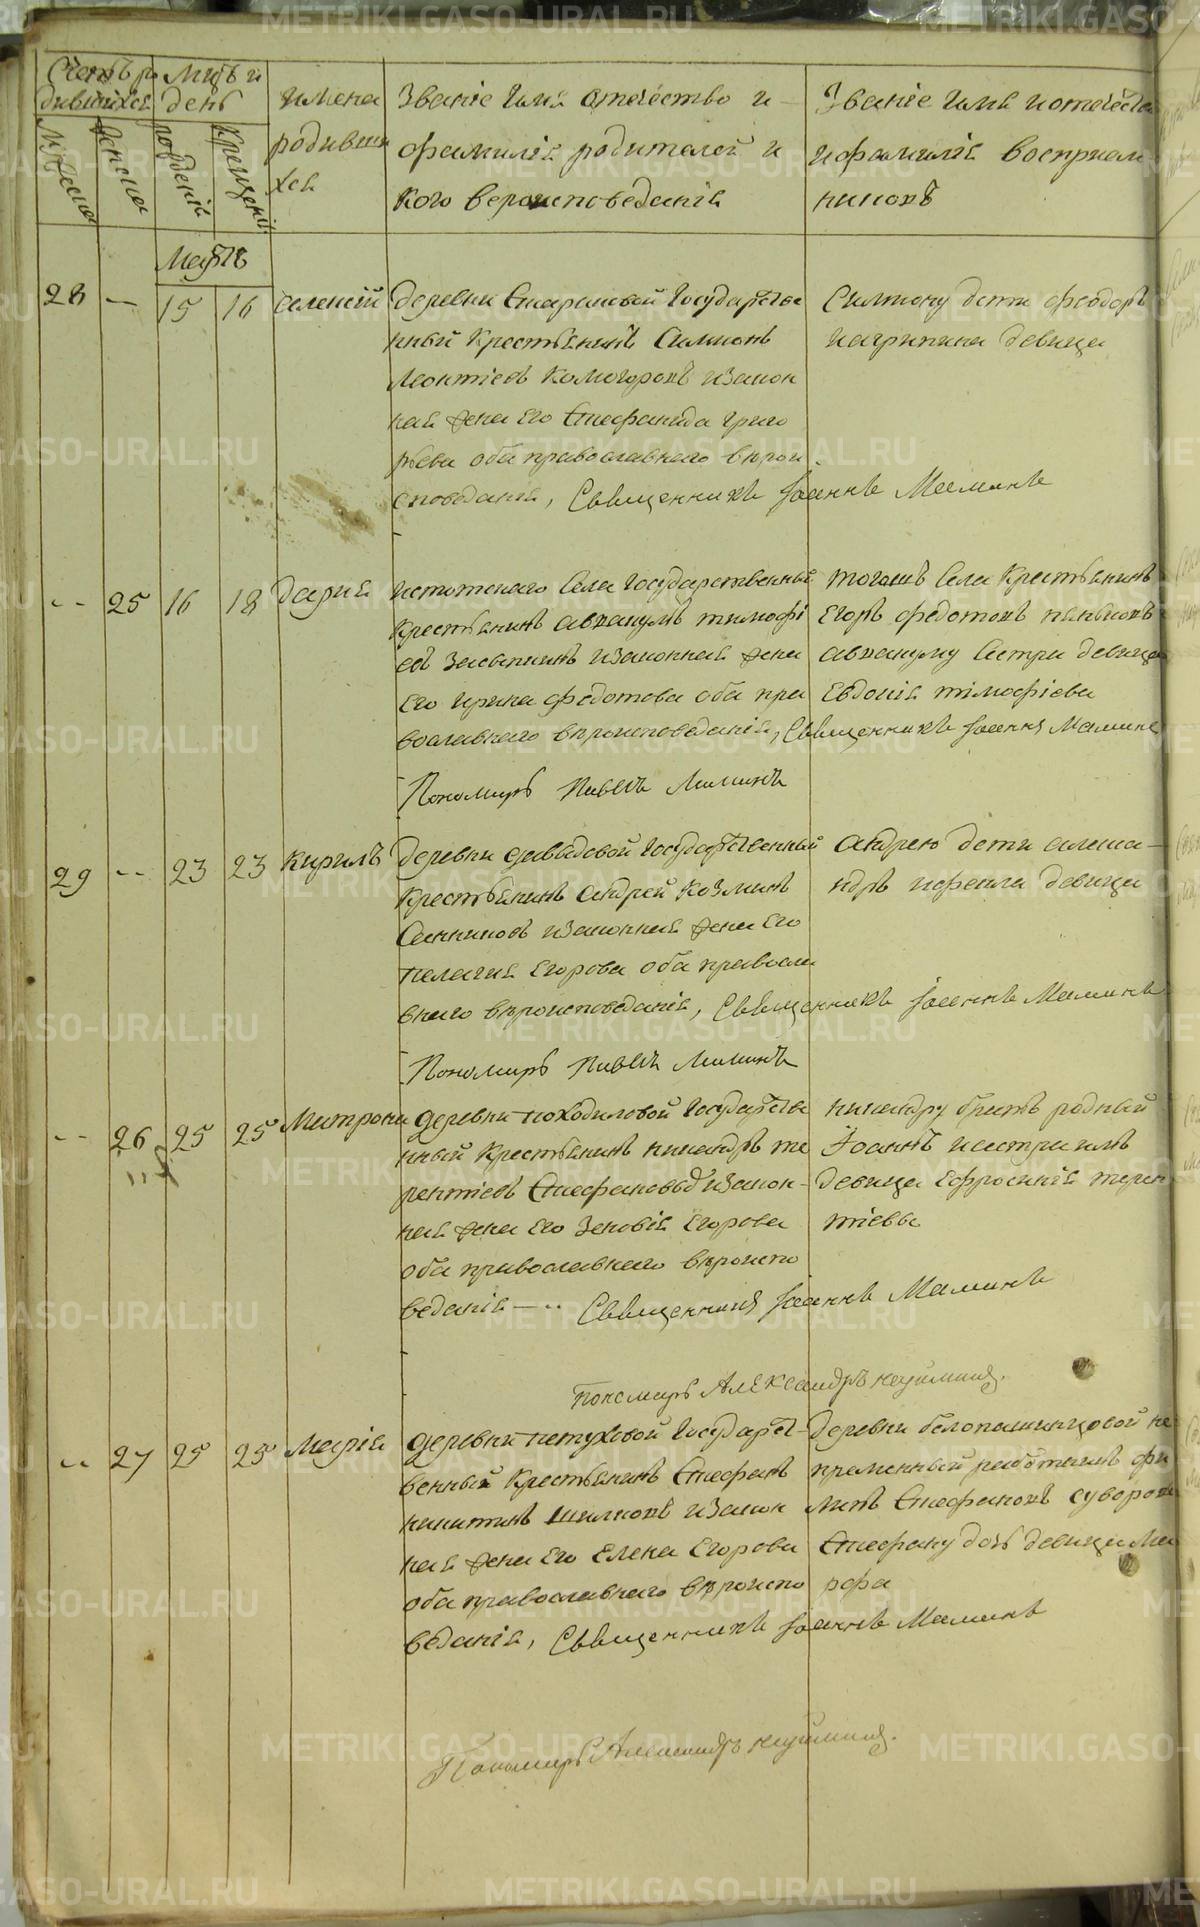 METRIKI.GASO-URAL.RU
Счетъ ро
дившихся
Мцъ и
день
имена
родивши
хся
Званіе имя отечество и
фамилія родителей и
кого вероисповеданія
Званіе имя и отечество
и фамилія восприем
никовъ
Мужеска
Женска
рожденія
крещенія
Мартъ
28 — 15 16 Алексѣй
деревни Государстве
нный крестьянинъ Симионъ
Леонтіевъ Комогоровъ и закон
ная жена его Стефанида Григо
рьева оба православнаго вѣрои
споведанія, Священникъ Іоаннъ Маминъ
Симиону дети Феодоръ
и агрипина девица
-- 25 16 18 Дарья
села Государственный
крестьянинъ авакумъ тимофі
евъ Засыпкинъ и законная жена
его ирина федотова оба пра
вославнаго вѣроисповеданія, Священникъ Іоаннъ Маминъ
Пономарь Павелъ Маминъ
тогожъ села крестьянинъ
Егоръ федотовъ паньковъ
авакуму сестра девица
Евдокія тімофіева
29 -- 23 23 Кирилъ
деревни давыдовой Государственный
крестьянинъ Андрей Козминъ
Санниковъ и законная жена его
пелагия Егорова оба правосла
внаго вѣроисповеданія, Священникъ Іоаннъ Маминъ
Пономарь Павелъ Маминъ
Андрею дети алекса-
ндръ и фекла девица
-- 26 25 25 Матрона
деревни походиловой Государстве
нный крестьянинъ никандръ те
рентіевъ Стефановыхъ и закон-
ная жена его Зеновія Егорова
оба православнаго вѣроиспо
веданія — Священникъ Іоаннъ Маминъ
пономарь Александръ неуйминъ.
никандру братъ родный
Іоаннъ и сестра имъ
девица Ефросинія терен
тіевы
-- 27 25 25 Марія
деревни петуховой Государст-
венный крестьянинъ Стефанъ
никитинъ Шилковъ и закон
ная жена его Елена Егорова
оба православнаго вѣроиспо
веданія, Священникъ Іоаннъ Маминъ
Пономарь Александръ неуйминъ.
деревни белопашинцовой не
пременный работникъ фи
липъ Стефановъ суворовъ
Стефану дочь девица Ма
рфа